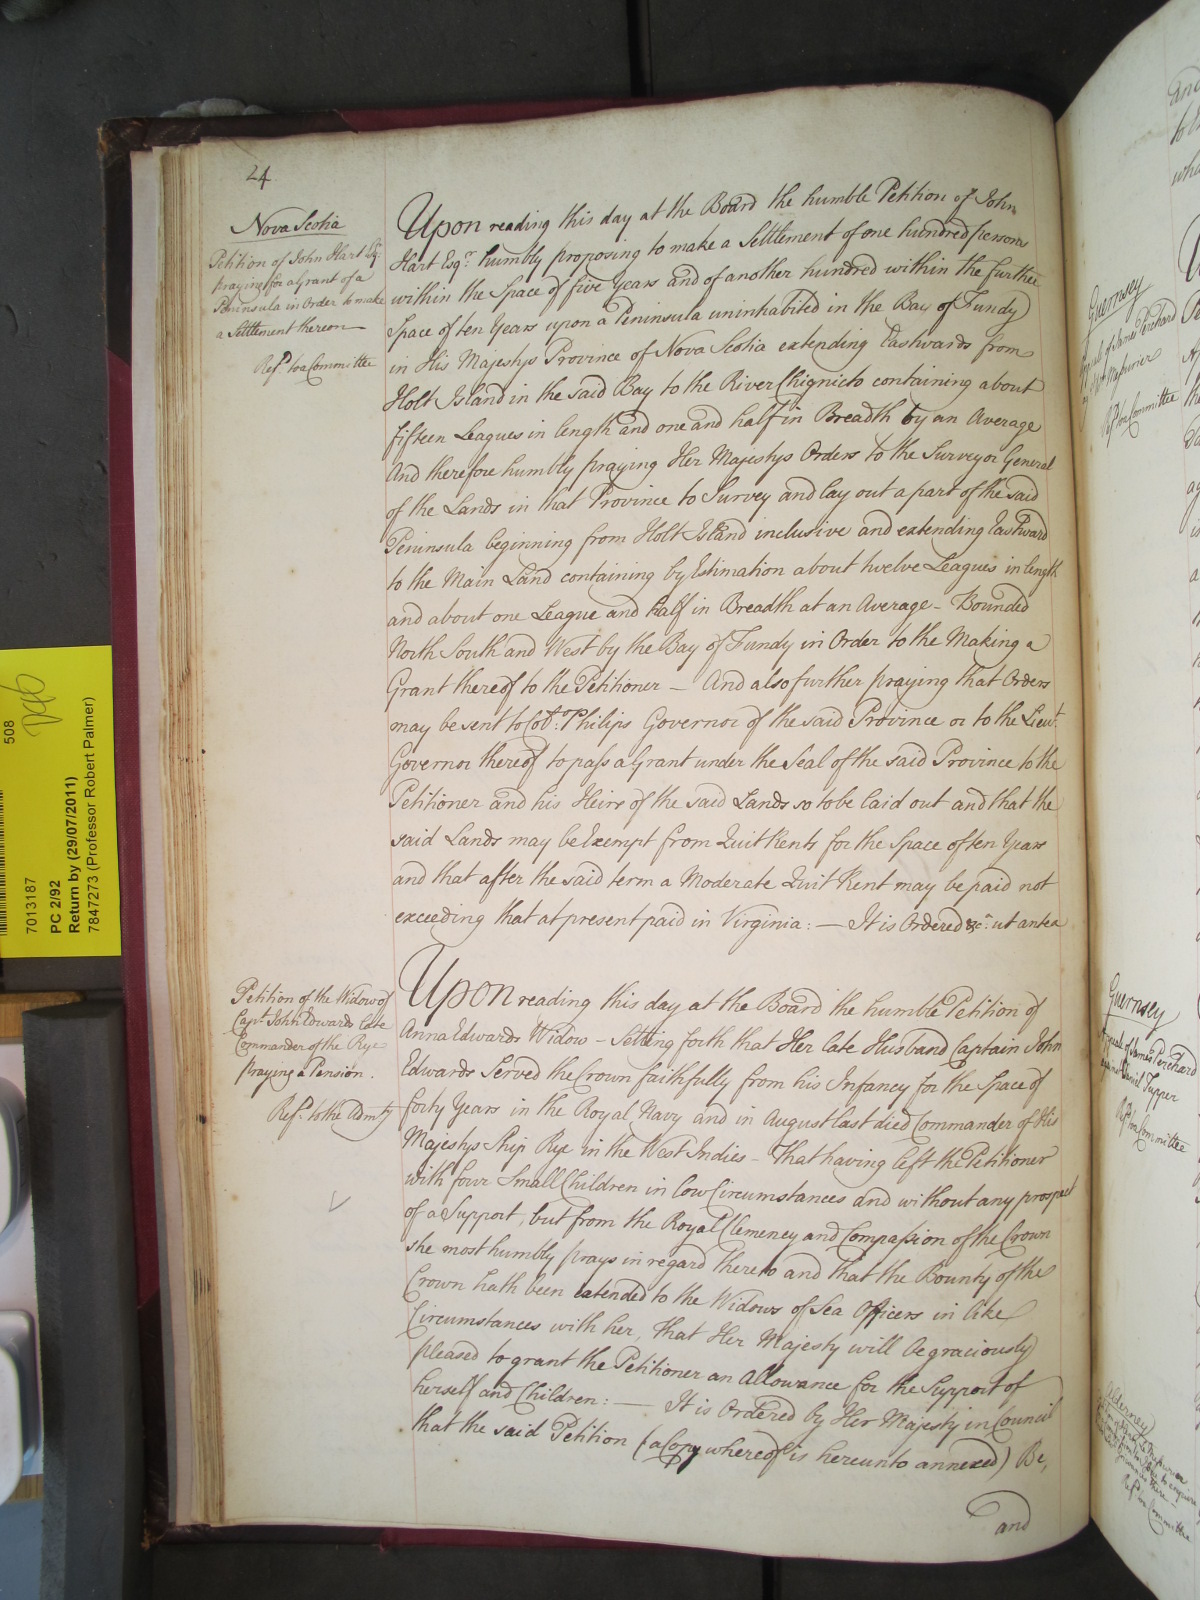 24
Nova Scotia
Petition of John Hart Esqr.
praying for a Grant of a
Peninsula in Order to make
a Settlement thereon
Refd. to a Committee
Upon reading this day at the Board the humble Petition of John
Hart Esqr. humbly proposing to make a Settlement of one hundred persons
within the Space of five Years and of another hundred within the further
Space of ten Years upon a Peninsula uninhabited in the Bay of Fundy
in His Majestys Province of Nova Scotia extending Eastwards from
Holt Island in the said Bay to the River Chignicto containing about
fifteen Leagues in length and one and half in Breadth by an Average
And therefore humbly praying Her Majestys Orders to the Surveyor General
of the Lands in that Province to Survey and lay out a part of the said
Peninsula beginning from Holt Island inclusive and extending Eastward
to the Main Land containing by Estimation about twelve Leagues in length
and about one League and half in Breadth at an Average - Bounded
North South and West by the Bay of Fundy in Order to the Making a
Grant thereof to the Petitioner — And also further praying that Orders
may be sent to Coll. Philips Governor of the said Province or to the Lieut.
Governor thereof to pass a Grant under the Seal of the said Province to the
Petitioner and his Heirs of the said Lands so to be laid out and that the
said Lands may be Exempt from Quit Rents for the Space of ten Years
and that after the said term a Moderate Quit Rent may be paid not
exceeding that at present paid in Virginia: — It is Ordered &ca. ut antea
Petition of the Widow of
Capt. John Edwards late
Commander of the Rye
praying a Pension.
Refd. to the Admty
Upon reading this day at the Board the humble Petition of
Anna Edwards Widow - Setting forth that Her late Husband Captain John
Edwards Served the Crown faithfully from his Infancy for the Space of
forty Years in the Royal Navy and in August last died Commander of His
Majestys Ship Rye in the West Indies - That having left the Petitioner
with four Small Children in low Circumstances and without any prospect
of a Support, but from the Royal Clemency and Compassion of the Crown
she most humbly prays in regard thereto and that the Bounty of the
Crown hath been extended to the Widows of Sea Officers in like
Circumstances with her, That Her Majesty will be graciously
pleased to grant the Petitioner an Allowance for the Support of
herself and Children: — It is Ordered by Her Majesty in Council
that the said Petition (a Copy whereof is hereunto annexed) Be,
and
508
7013187
PC 2/92
Return by (29/07/2011)
7847273 (Professor Robert Palmer)
Guernsey
Refd. to a Committee
Guernsey
Appeal of James Perchard
against Daniel Tupper
Refd. to a Committee
Alderney